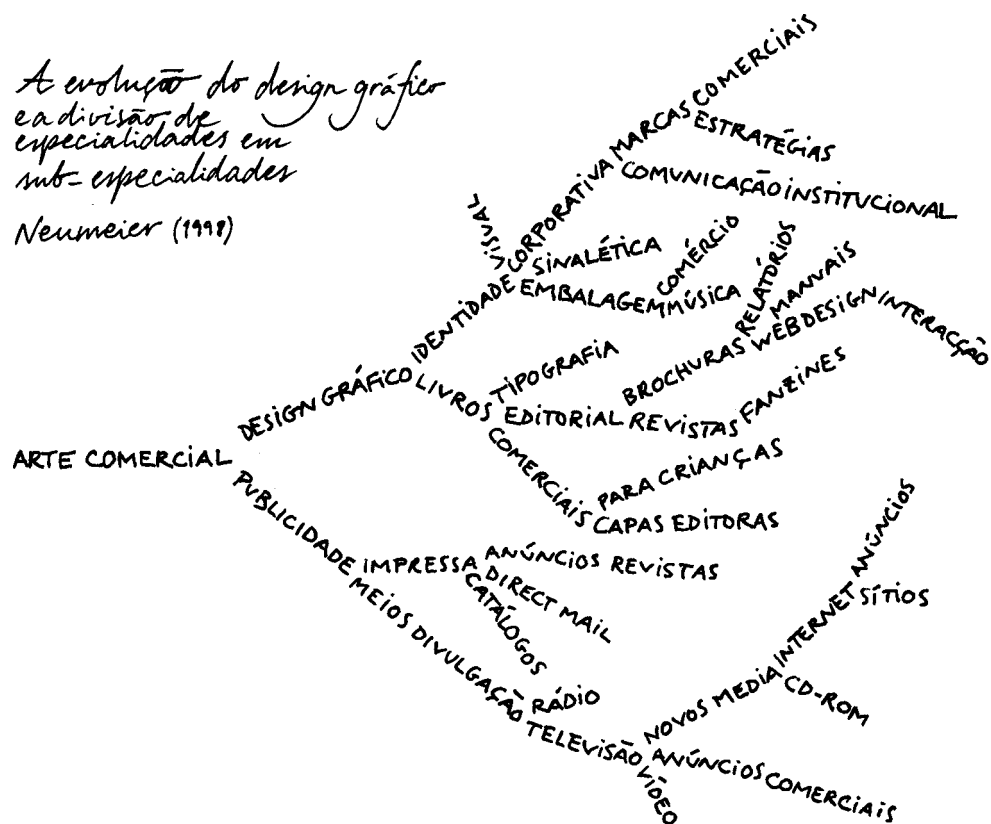 A evolução do design gráfico
e a divisão de
especialidades em
sub-especialidades
Neumeier (1998)
ARTE COMERCIAL
DESIGN GRÁFICO
IDENTIDADE
VISUAL
CORPORATIVA
MARCAS
COMERCIAIS
ESTRATÉGIAS
COMUNICAÇÃO INSTITUCIONAL
SINALÉTICA
EMBALAGEM
COMÉRCIO
MÚSICA
LIVROS
TIPOGRAFIA
EDITORIAL
BROCHURAS
RELATÓRIOS
MANUAIS
WEBDESIGN
INTERACÇÃO
REVISTAS
FANZINES
COMERCIAIS
PARA CRIANÇAS
CAPAS EDITORAS
PUBLICIDADE
IMPRESSA
ANÚNCIOS REVISTAS
DIRECT MAIL
CATÁLOGOS
MEIOS DIVULGAÇÃO
RÁDIO
TELEVISÃO
NOVOS MEDIA
INTERNET
ANÚNCIOS
SÍTIOS
CD-ROM
ANÚNCIOS COMERCIAIS
VÍDEO